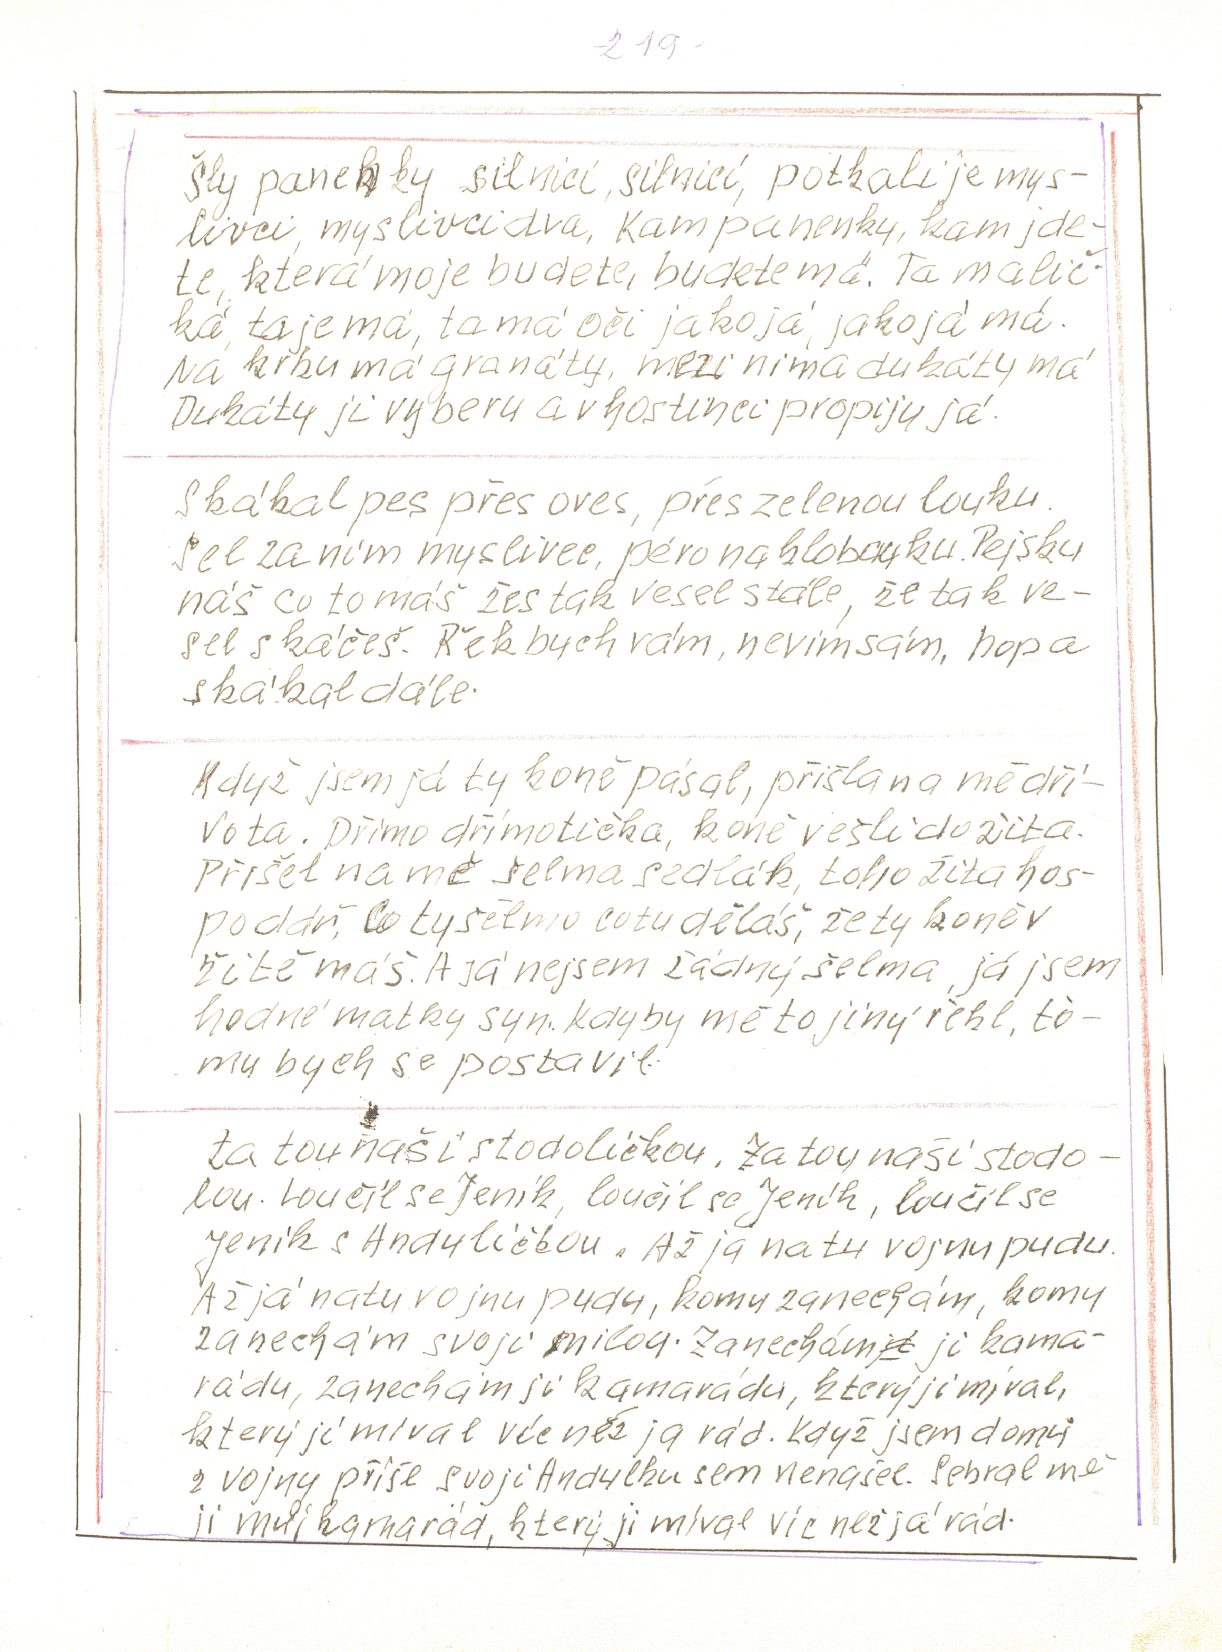 - 219 -
Šly panenky silnicí, silnicí, potkali je mys-
livci, myslivci dva, Kam panenky, kam jde-
te, která moje budete, budete má. Ta malič-
ká, ta je má, ta má oči jako já, jako já má.
Na krku má granáty, mezi nima dukáty má
Dukáty ji vyberu a v hostinci propiju já.
Skákal pes přes oves, přes zelenou louku.
Šel za ním myslivec, péro na klobouku. Pejsku
náš co to máš žes tak vesel stále, že tak ve-
sel skáčeš. Řek bych vám, nevím sám, hop a
skákal dále.
Když jsem já ty koně pásal, přišla na mě dří-
vota. Dřímo dřímotička, koně vešli do žita.
Přišel na mě šelma sedlák, toho žita hos-
podář, Co ty šelmo co tu děláš, že ty koně v
žitě máš. A já nejsem žádný šelma, já jsem
hodné matky syn. Kdyby mě to jiný řekl, to-
mu bych se postavil.
Za tou naší stodoličkou. Za tou naší stodo-
lou. Loučil se Jeník, loučil se Jeník, loučil se
Jeník s Anduličkou. Až já na tu vojnu pudu.
Až já na tu vojnu pudu, komu zanechám, komu
zanechám svoji milou. Zanechám ji kama-
rádu, zanechám ji kamarádu, který ji míval,
který ji míval víc než já rád. Když jsem domů
z vojny příšel svoji Andulku sem nenašel. Sebral mě
ji můj kamarád, který ji míval víc než já rád.